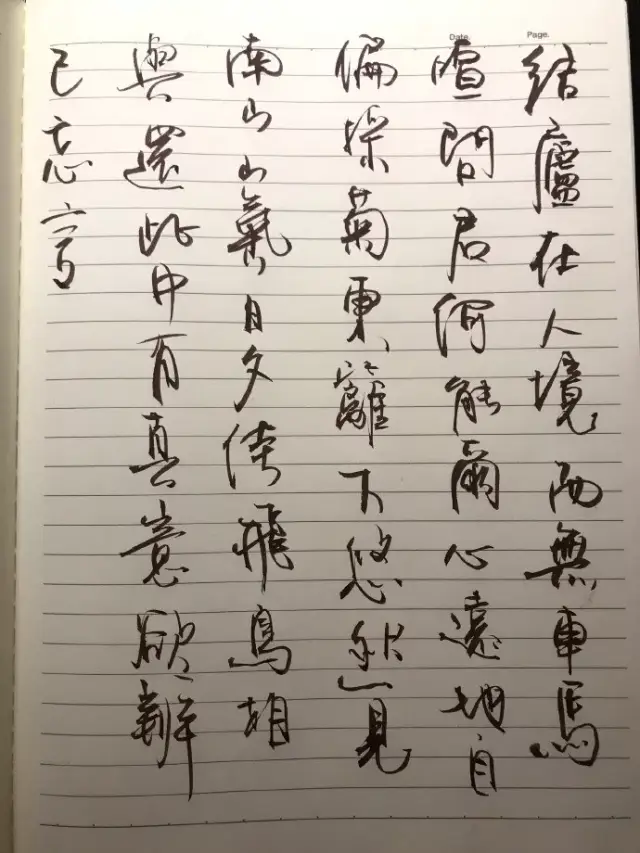 Date.
Page.
結廬在人境而無車馬
喧問君何能爾心遠地自
偏採菊東籬下悠然見
南山山氣日夕佳飛鳥相
與還此中有真意欲辨
已忘言